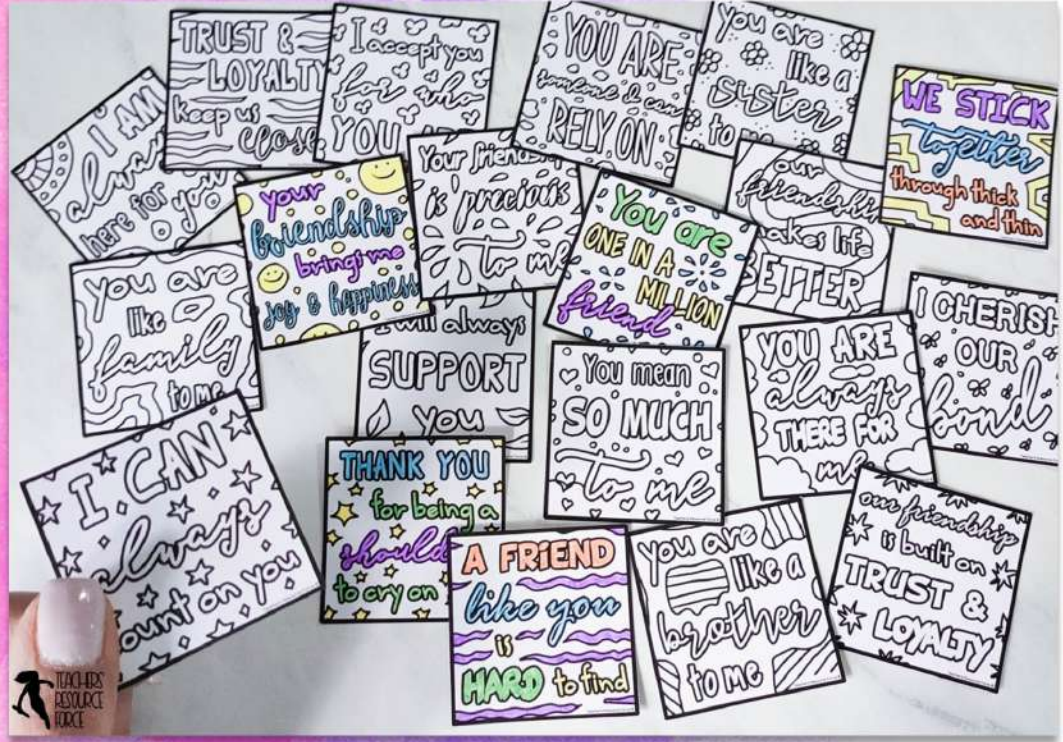 TRUST &
LOYALTY
keep us
close
I accept you
for who
YOU
YOU ARE
someone I can
RELY ON
you are
like a
sister
to
WE STICK
together
through thick
and thin
I AM
here for you
your
friendship
brings me
joy & happiness
Your
is precious
to me
You are
ONE IN A
MILLION
friend
our
friendship
life
BETTER
you are
like
family
to me
I will always
SUPPORT
you
You mean
SO MUCH
to me
YOU ARE
always
THERE FOR
me
I CHERISH
OUR
bond
I CAN
always
count on you
THANK YOU
for being a
to cry on
A FRiEND
like you
is
HARD to find
you are
like a
brother
to me
our friendship
is built on
TRUST &
LOYALTY
TEACHERS'
RESOURCE
FORCE